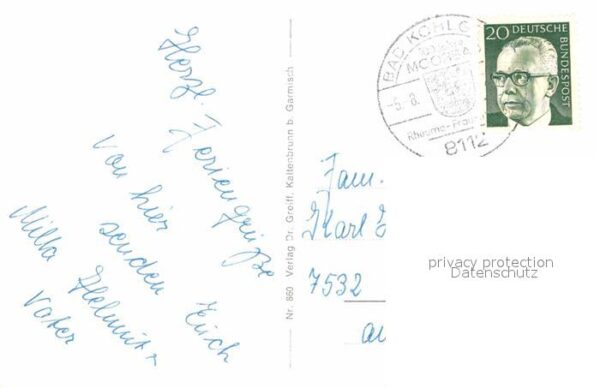 Herzl. Feriengrüße
von hier
senden Euch
Milla Helmut +
Vater
Nr. 860 Verlag Dr. Greiff, Kaltenbrunn b. Garmisch
BAD KOHLG
MOO
-5.-8.
Rheuma-Frau
8112
20 DEUTSCHE
BUNDESPOST
Fam.
Karl
7532
privacy protection
Datenschutz